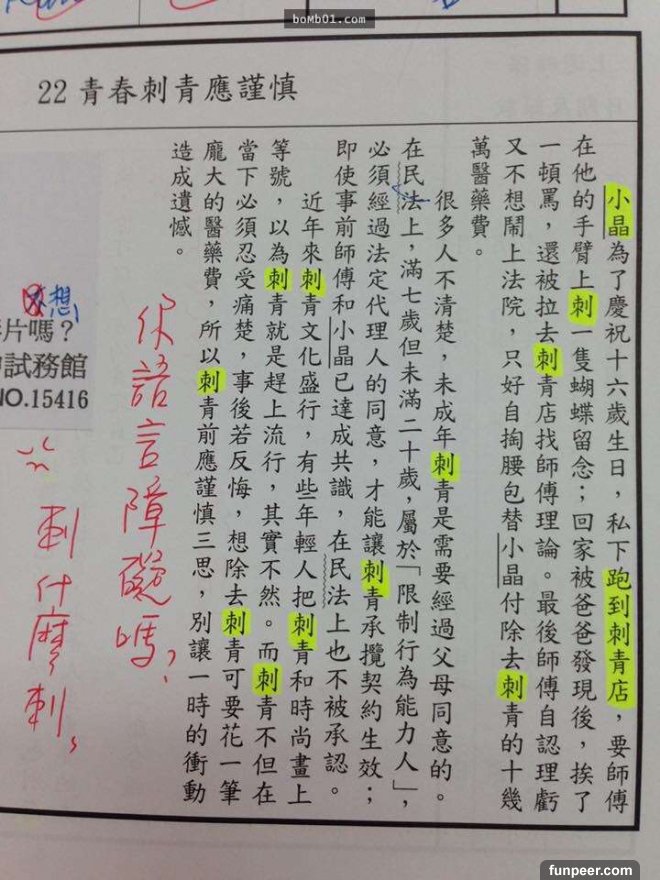 boMb01.com
22 青春刺青應謹慎
小晶為了慶祝十六歲生日，私下跑到刺青店，要師傅
在他的手臂上刺一隻蝴蝶留念；回家被爸爸發現後，挨了
一頓罵，還被拉去刺青店找師傅理論。最後師傅自認理虧
又不想鬧上法院，只好自掏腰包替小晶付除去刺青的十幾
萬醫藥費。
很多人不清楚，未成年刺青是需要經過父母同意的。
在民法上，滿七歲但未滿二十歲，屬於「限制行為能力人」，
必須經過法定代理人的同意，才能讓刺青承攬契約生效；
即使事前師傅和小晶已達成共識，在民法上也不被承認。
近年來刺青文化盛行，有些年輕人把刺青和時尚畫上
等號，以為刺青就是趕上流行，其實不然。而刺青不但在
當下必須忍受痛楚，事後若反悔，想除去刺青可要花一筆
龐大的醫藥費，所以刺青前應謹慎三思，別讓一時的衝動
造成遺憾。
你語言障礙嗎？
刺什麼刺，
想
片嗎？
試務館
NO.15416
funpeer.com